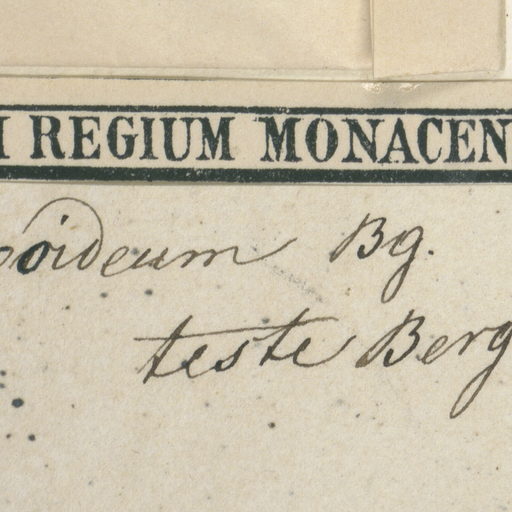 I REGIUM MONACEN
oideum Bg.
teste Berg